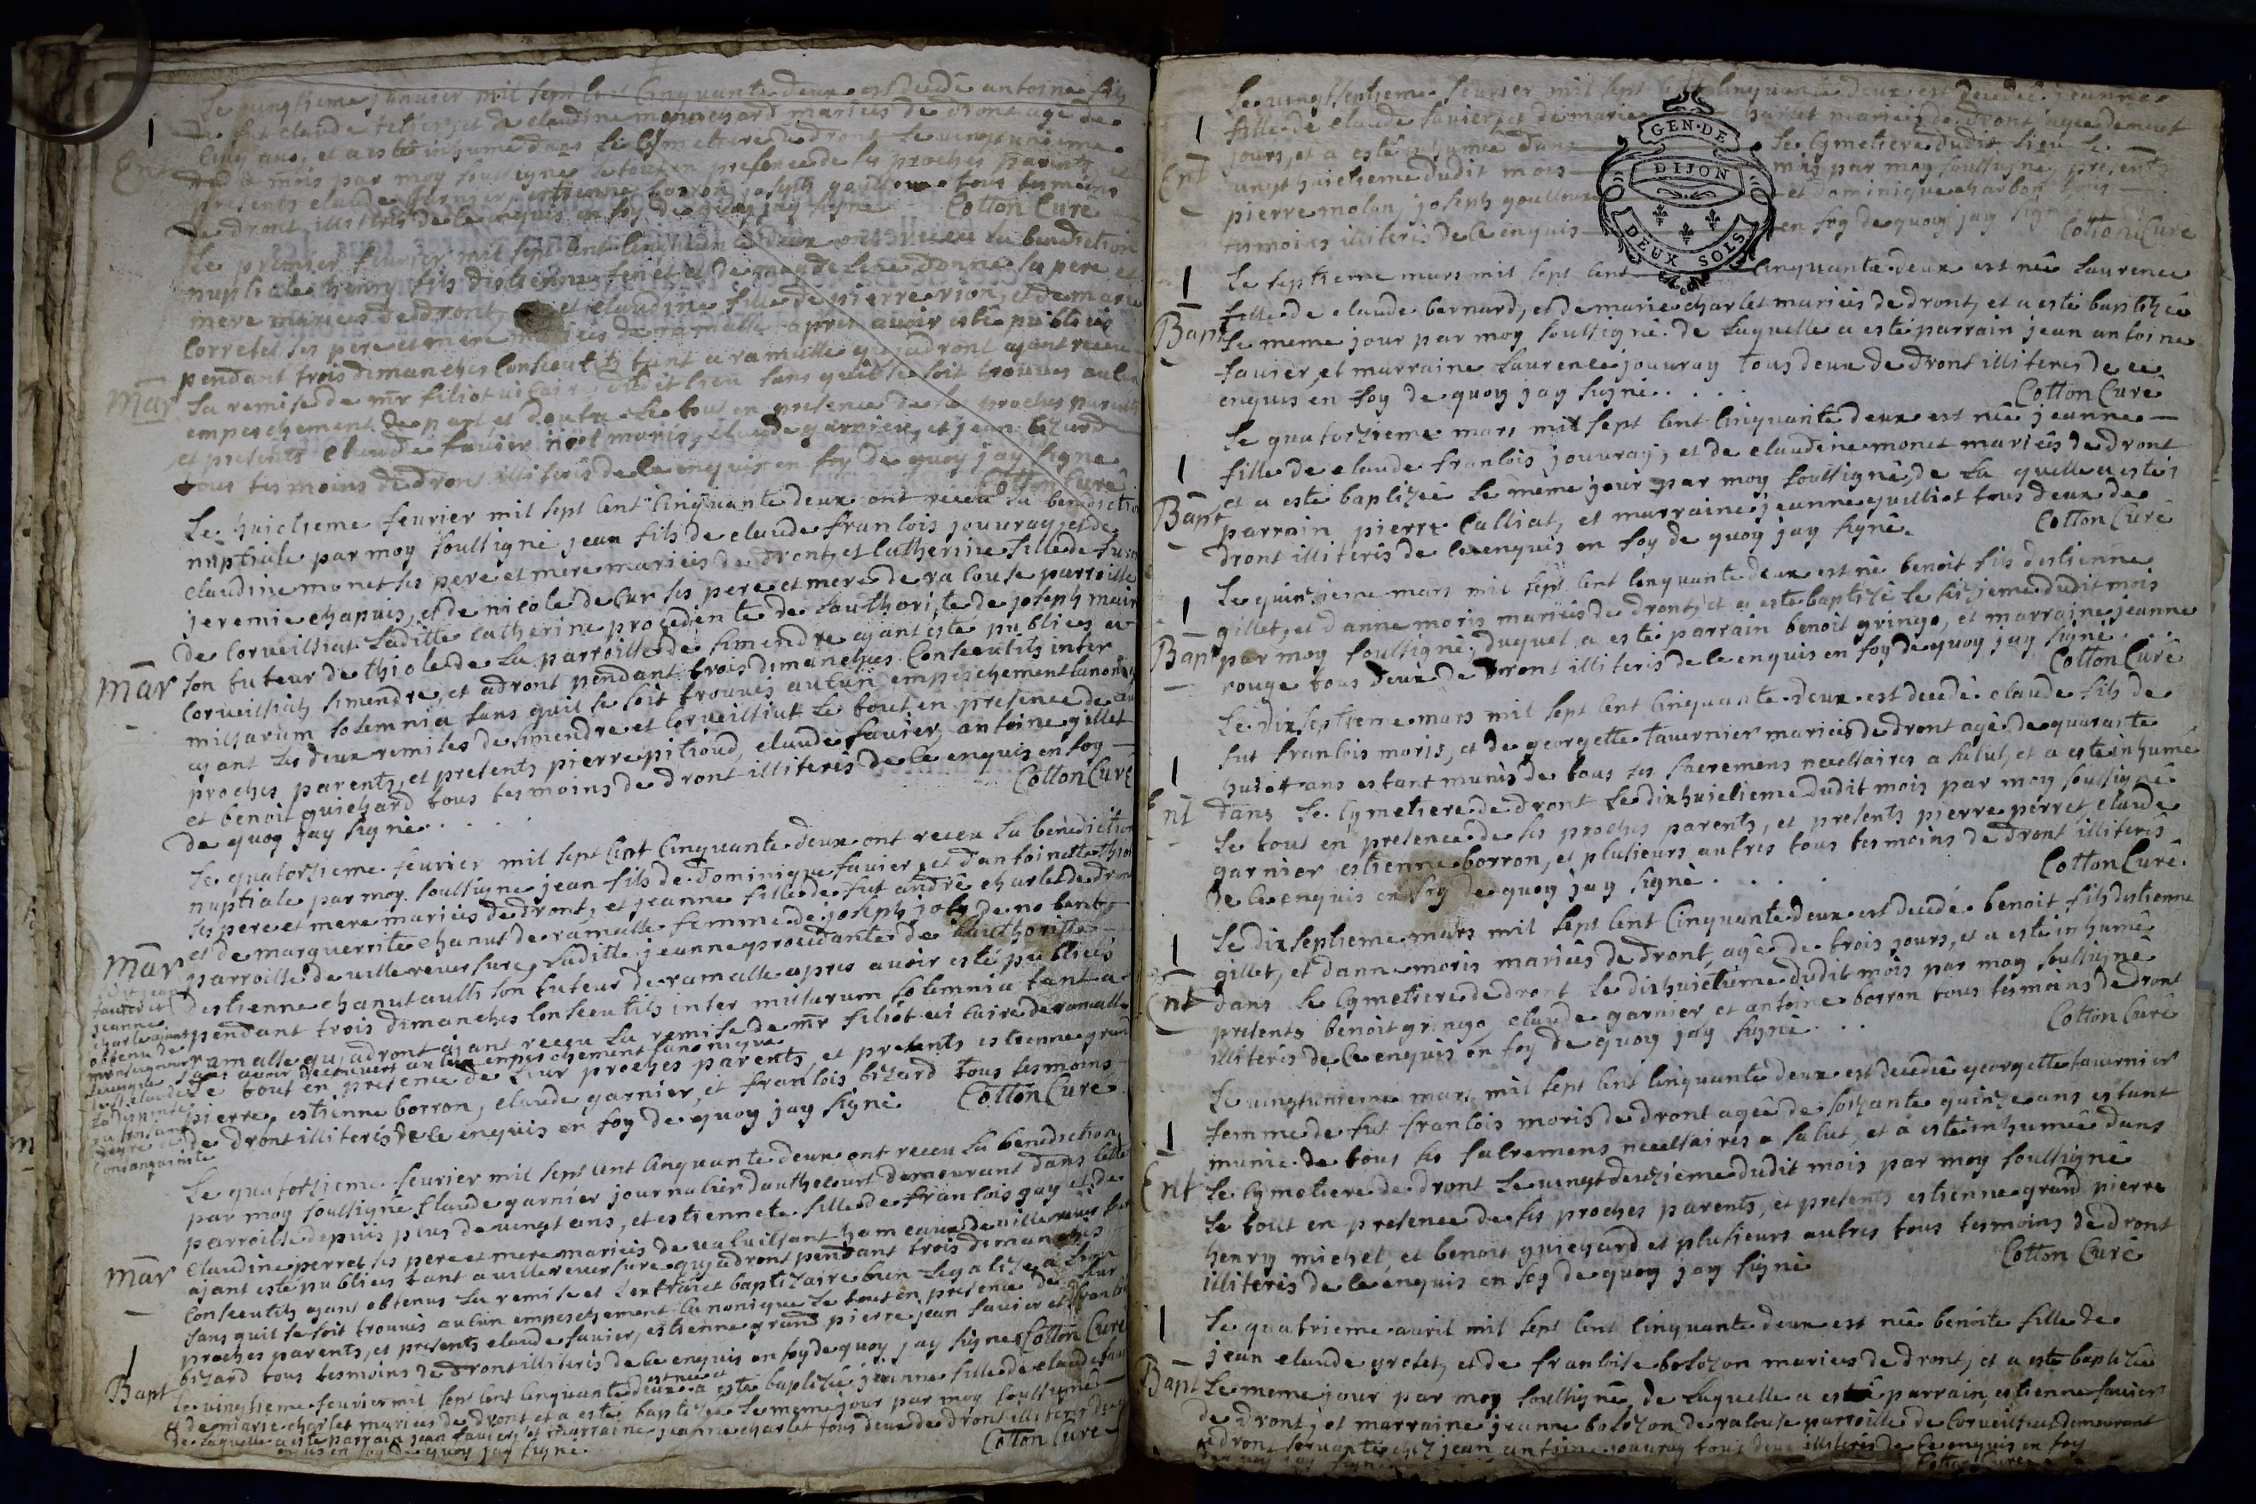 Le vingtieme janvier mil sept cent cinquante deux est decedé antoine fils
de fut claude et de claudine mariées de dront agé de
cinq ans, et a esté inhumé dans le cymetiere de dront le
dudit mois par moy soussigne le tout en presence de ses proches parents et
presents claude garnier estienne borron joseph tous tesmoins
de dront illiterés de ce enquis en foy de quoy jay signe Cotton Curé
Ent
Le premier fevrier mil sept cent cinquante deux ont receu la benediction
nuptiale henry fils destienne et de donne ses pere et
mere mariées de dront, et claudine fille de pierre rion, et de marie
ses pere et mere mariées de ramalle apres avoir esté publiees
pendant trois dimanches consecutifs tant a ramalle qujadront ajant receu
Mar la remise de mr filiot vicaire dudit lieu sans quil se soit trouves aucun
empeschement de part et dautre le tout en presence de ses proches parents
et presents claude favier noel moris, claude garnier, et jean bizard
tous tesmoins de dront illiterés de ce enquis en foy de quoy jay signe
Cotton Curé
Le huictieme fevrier mil sept cent cinquante deux ont receu la benediction
nuptiale par moy soussigne jean fils de claude francois jouuray, et de
claudine monet ses pere et mere mariées de dront, et catherine fille de fut
jeremie chapuis, et de nicole decur ses pere et mere de ra louse parroisse
de corveissiat laditte catherine procedente de lauthorite de joseph
Mar son tuteur de thiole de la parroisse de simendre ajant esté publiees a
corveissiat, simendre, et adront pendant trois dimanches consecutifs inter
missarum solemnia sans quil se soit trouves aucun empeschement canonique
ajant les deux remises de simendre et corveissiat le tout en presence de
proches parents, et presents pierre pitioud, claude favier, antoine gillet
et benoit guichard tous tesmoins de dront illiteres de ce enquis en foy
de quoy jay signe. Cotton Curé
Le quatorsieme fevrier mil sept cent cinquante deux ont receu la benediction
nuptiale par moy soussigne jean fils de dominique favier, et dantoinette
ses pere et mere mariées de dront, et jeanne fille de fut andré charlet de dront
et de marguerite chanut de ramalle femme de joseph joly de
Mar parroisse de villereversure, laditte jeanne procedante de lauthorité
destienne chanut aussi son tuteur de ramalle apres avoir esté publiees
pendant trois dimanches consecutifs inter missarum solemnia tant a
ramalle qujadront ajant receu la remise de mr filiot vicaire de ramalle
sans avoir decouvert aucun empeschement canonique
le tout en presence de leur proches parents, et presents estienne grand
pierre, estienne borron, claude garnier, et francois bizard tous tesmoins
de dront illiterés de ce enquis en foy de quoy jay signé Cotton Curé
jeanne
charlet ajant
obtenu de
monseigneur
leveque
de st claude
la dispense
consanguinité
Le quatorsieme fevrier mil sept cent cinquante deux ont receu la benediction
par moy soussigné claude garnier journalier dauthecourt demeurant dans cette
parroisse depuis plus de vingt ans, et estiennete fille de francois gay et de
claudine perret ses pere et mere mariées de hameaux de villereversure
Mar ajant esté publiees tant a villereversure qujadront pendant trois dimanches
consecutifs ajant obtenus la remise et lextrait baptizaire bien legalizé
sans quil se soit trouves aucun empeschement canonique le tout en presence de leur
proches parents, et presents claude favier, estienne grand pierre jean favier et francois
bizard tous tesmoins de dront illiterés de ce enquis en foy de quoy jay signe Cotton Curé
Bapt Le vingtieme fevrier mil sept cent cinquante deux est née et a esté baptizée jeanne fille de claude favier
et de marie charlet mariées de dront et a esté baptizée le meme jour par moy soussigné
de laquelle a esté parrain jean favier, et marraine jeanne charlet tous deux de dront illiterés de ce
enquis en foy de quoy jay signe. Cotton Curé
Le vingt septieme fevrier mil sept cent cinquante deux est decedée jeanne
fille de claude favier, et de marie charlet mariées de dront agée de neuf
jours, et a esté inhumée dans le cymetiere dudit lieu le
Ent vingt huictieme dudit mois par moy soussigne, presents
pierre molon, joseph et dominique charbon tous
tesmoins illiterés de ce enquis en foy de quoy jay signé
Cotton Curé
GEN·DE
DIJON
DEUX SOLS
Le septieme mars mil sept cent cinquante deux est née laurence
fille de claude bernard, et de marie charlet mariées de dront, et a esté baptizée
Bapt le meme jour par moy soussigné de laquelle a esté parrain jean antoine
favier, et marraine laurence jouuray tous deux de dront illiterés de ce
enquis en foy de quoy jay signé. Cotton Curé
Le quatorzieme mars mil sept cent cinquante deux est née jeanne
fille de claude francois jouuray, et de claudine monet mariées de dront
et a esté baptizée le meme jour par moy soussigné, de la quelle a estés
Bapt parrain pierre calliat, et marraine jeanne guilliot tous deux de
dront illiterés de ce enquis en foy de quoy jay signé. Cotton Curé
Le quinzieme mars mil sept cent cinquante deux est né benoit fils destienne
gillet, et danne moris mariées de dront, et a esté baptizé le sizieme dudit mois
Bapt par moy soussigné, duquel a esté parrain benoit gringo, et marraine jeanne
rouge tous deux de dront illiterés de ce enquis en foy de quoy jay signé.
Cotton Curé
Le dix septieme mars mil sept cent cinquante deux est decedé claude fils de
fut francois moris, et de georgette tavernier mariées de dront agé de quarante
huict ans estant munis de tous ses sacremens necessaires a salut, et a esté inhumé
Ent dans le cymetiere de dront le dixhuictieme dudit mois par moy soussigné
le tout en presence de ses proches parents, et presents pierre perret, claude
garnier estienne borron, et plusieurs autres tous tesmoins de dront illiterés
de ce enquis en foy de quoy jay signé. Cotton Curé.
Le dix septieme mars mil sept cent cinquante deux est decedé benoit fils destienne
gillet, et danne moris mariées de dront, agé de trois jours, et a esté inhumé
Ent dans le cymetiere de dront le dixhuictieme dudit mois par moy soussigné
presents benoit gringo, claude garnier et antoine borron tous tesmoins de dront
illiterés de ce enquis en foy de quoy jay signé. Cotton Curé
Le vingtunieme mars mil sept cent cinquante deux est decedée georgette tavernier
femme de fut francois moris de dront agée de soizante quinze ans estant
munie de tous ses sacremens necessaires a salut, et a esté inhumée dans
Ent le cymetiere de dront le vingt deuzieme dudit mois par moy soussigné
le tout en presence de ses proches parents, et presents estienne grand pierre
henry michel, et benoit guichard et plusieurs autres tous tesmoins de dront
illiterés de ce enquis en foy de quoy jay signé Cotton Curé
Le quatrieme avril mil sept cent cinquante deux est née benoite fille de
jean claude gretet, et de francoise bolozon mariées de dront, et a esté baptizée
Bapt le meme jour par moy soussigné, de laquelle a esté parrain estienne favier
de dront, et marraine jeanne bolozon de ra louse parroisse de corveissiat demeurant
adront servante chez jean antoine jouuray tous deux illiterés de ce enquis en foy
de quoy jay signé Cotton Curé